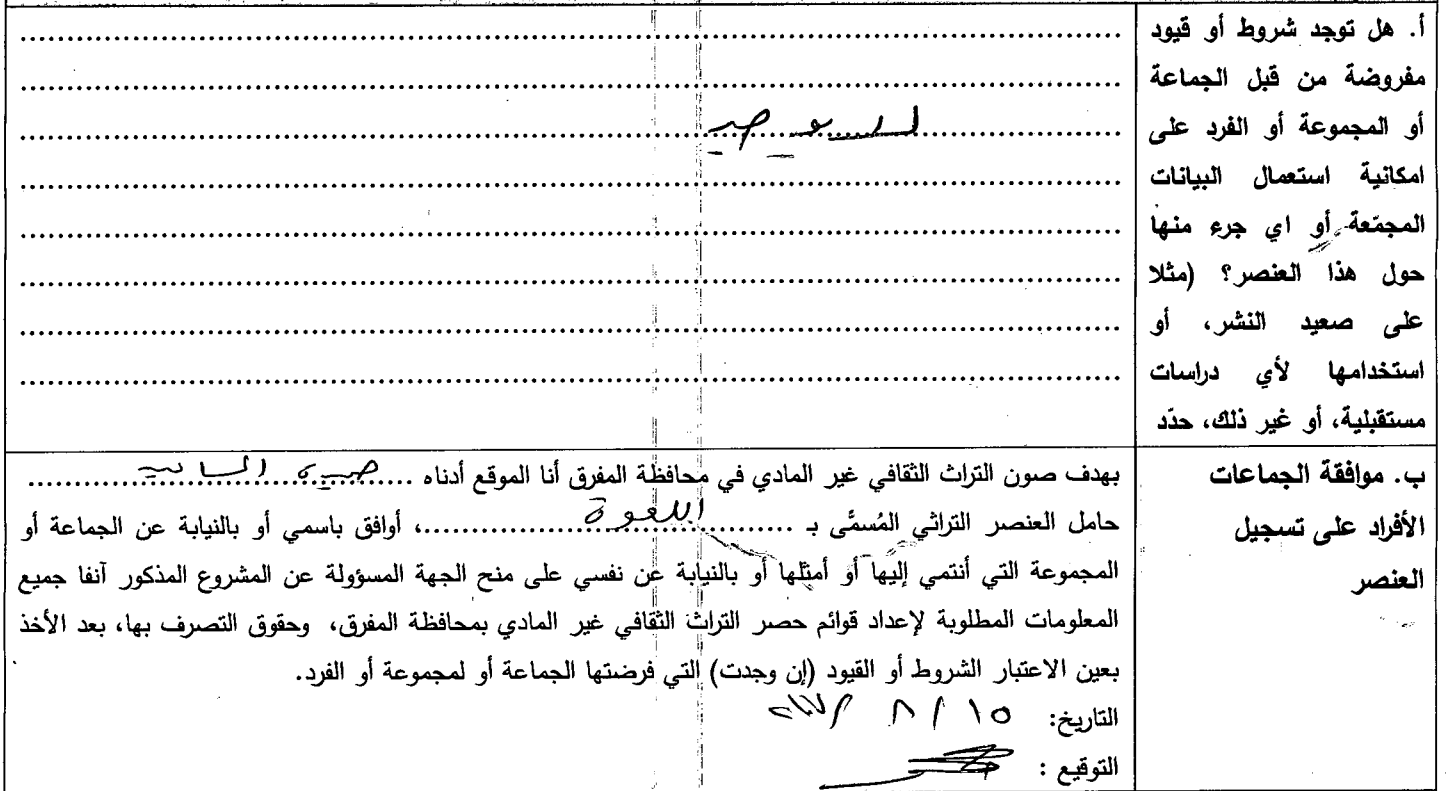 أ. هل توجد شروط أو قيود
مفروضة من قبل الجماعة
أو المجموعة أو الفرد على
امكانية استعمال البيانات
المجمّعة أو اي جرء منها
حول هذا العنصر؟ (مثلا
على صعيد النشر، أو
استخدامها لأي دراسات
مستقبلية، أو غير ذلك، حدّد
لا يوجد
ب. موافقة الجماعات
الأفراد على تسجيل
العنصر
بهدف صون التراث الثقافي غير المادي في محافظة المفرق أنا الموقع أدناه ........................
حامل العنصر التراثي المُسمَّى بـ ........................، أوافق باسمي أو بالنيابة عن الجماعة أو
المجموعة التي أنتمي إليها أو أمثلها أو بالنيابة عن نفسي على منح الجهة المسؤولة عن المشروع المذكور آنفا جميع
المعلومات المطلوبة لإعداد قوائم حصر التراث الثقافي غير المادي بمحافظة المفرق، وحقوق التصرف بها، بعد الأخذ
بعين الاعتبار الشروط أو القيود (إن وجدت) التي فرضتها الجماعة أو لمجموعة أو الفرد.
التاريخ: ١٥ / ٨ /
التوقيع :